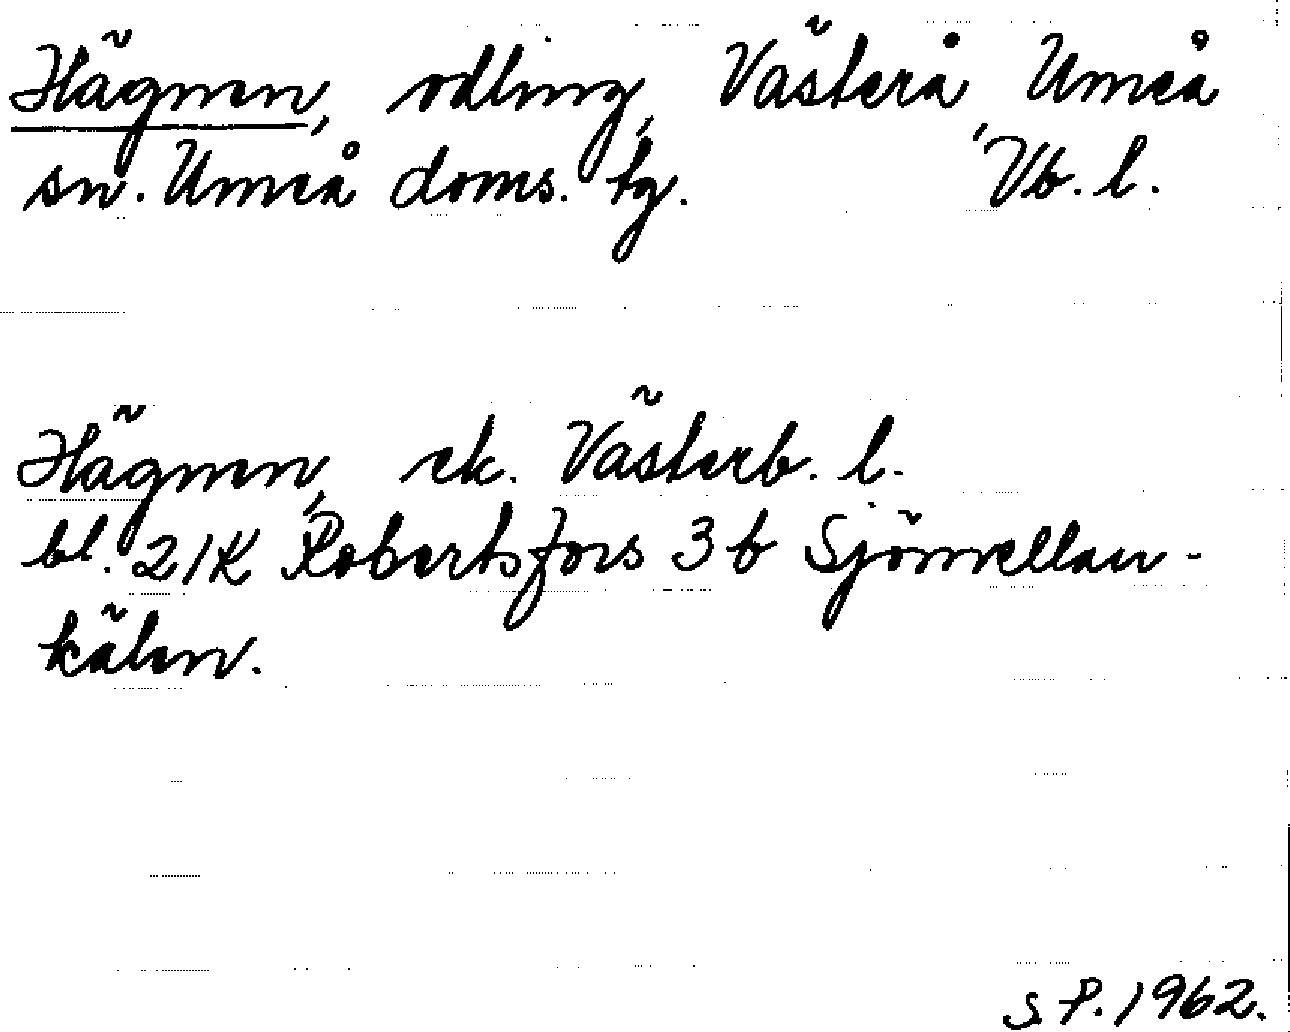 Hägnen, odling, Västerå, Umeå
sn. Umeå doms. tg. Vb. l.
Hägnen, ek. Västerb. l.
bl. 21K Robertsfors 3 b Sjömellan-
kälen.
S.P. 1962.